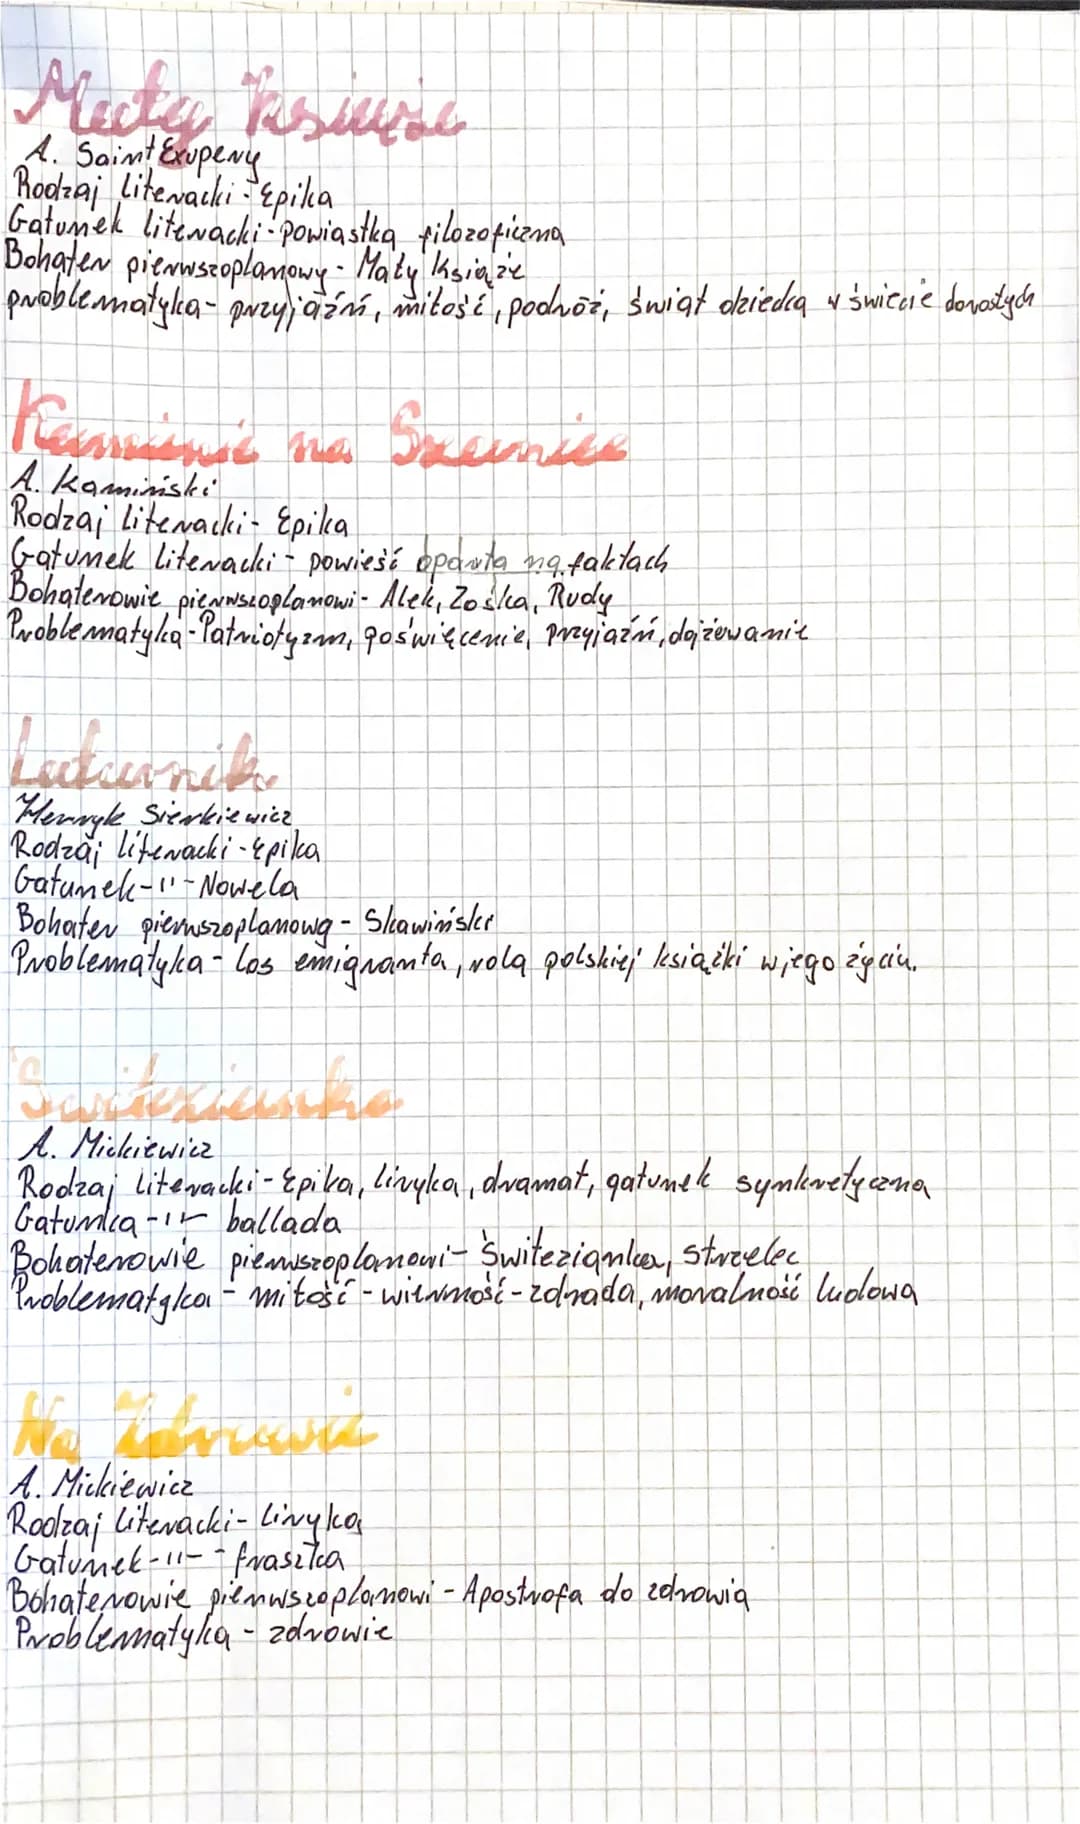 Mały Książe
A. Saint Exupery
Rodzaj literacki - Epika
Gatunek literacki - powiastka filozoficzna
Bohater pierwszoplanowy - Mały Książe
problematyka - przyjaźń, miłość, podróż, świat dziecka w świecie dorosłych
Kamienie na Szaniec
A. Kamiński
Rodzaj literacki - Epika
Gatunek literacki - powieść oparta na faktach
Bohaterowie pierwszoplanowi - Alek, Zośka, Rudy
Problematyka - Patriotyzm, poświęcenie, przyjaźń, dojżewanie
Latarnik
Henryk Sienkiewicz
Rodzaj literacki - epika
Gatunek -11- Nowela
Bohater pierwszoplanowy - Skawiński
Problematyka - los emigranta, rola polskiej książki w jego życiu.
Świtezianka
A. Mickiewicz
Rodzaj literacki - Epika, liryka, dramat, gatunek synkretyczna
Gatunka -11- ballada
Bohaterowie pierwszoplanowi - Świtezianka, strzelec
Problematyka - miłość - wierność - zdrada, moralność ludowa
Na Zdrowie
A. Mickiewicz
Rodzaj literacki - liryka
Gatunek -11- - fraszka
Bohaterowie pierwszoplanowi - Apostrofa do zdrowia
Problematyka - zdrowie